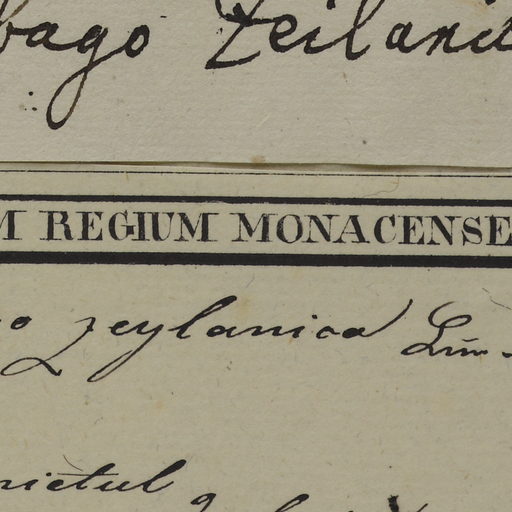 bago Zeilani
M REGIUM MONACENSE
go zeylanica Lin.
nictul